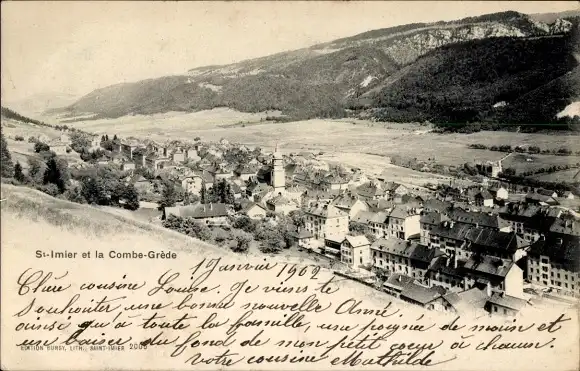 St-Imier et la Combe-Grède
17 Janvier 1902
Chère cousine Louise. Je viens te
souhaiter une bonne nouvelle Année
ainsi qu'à toute la famille, une poignée de main et
un baiser du fond de mon petit cœur à chacun.
votre cousine Mathilde
EDITION BURGY, LITH., SAINT-IMIER 2005